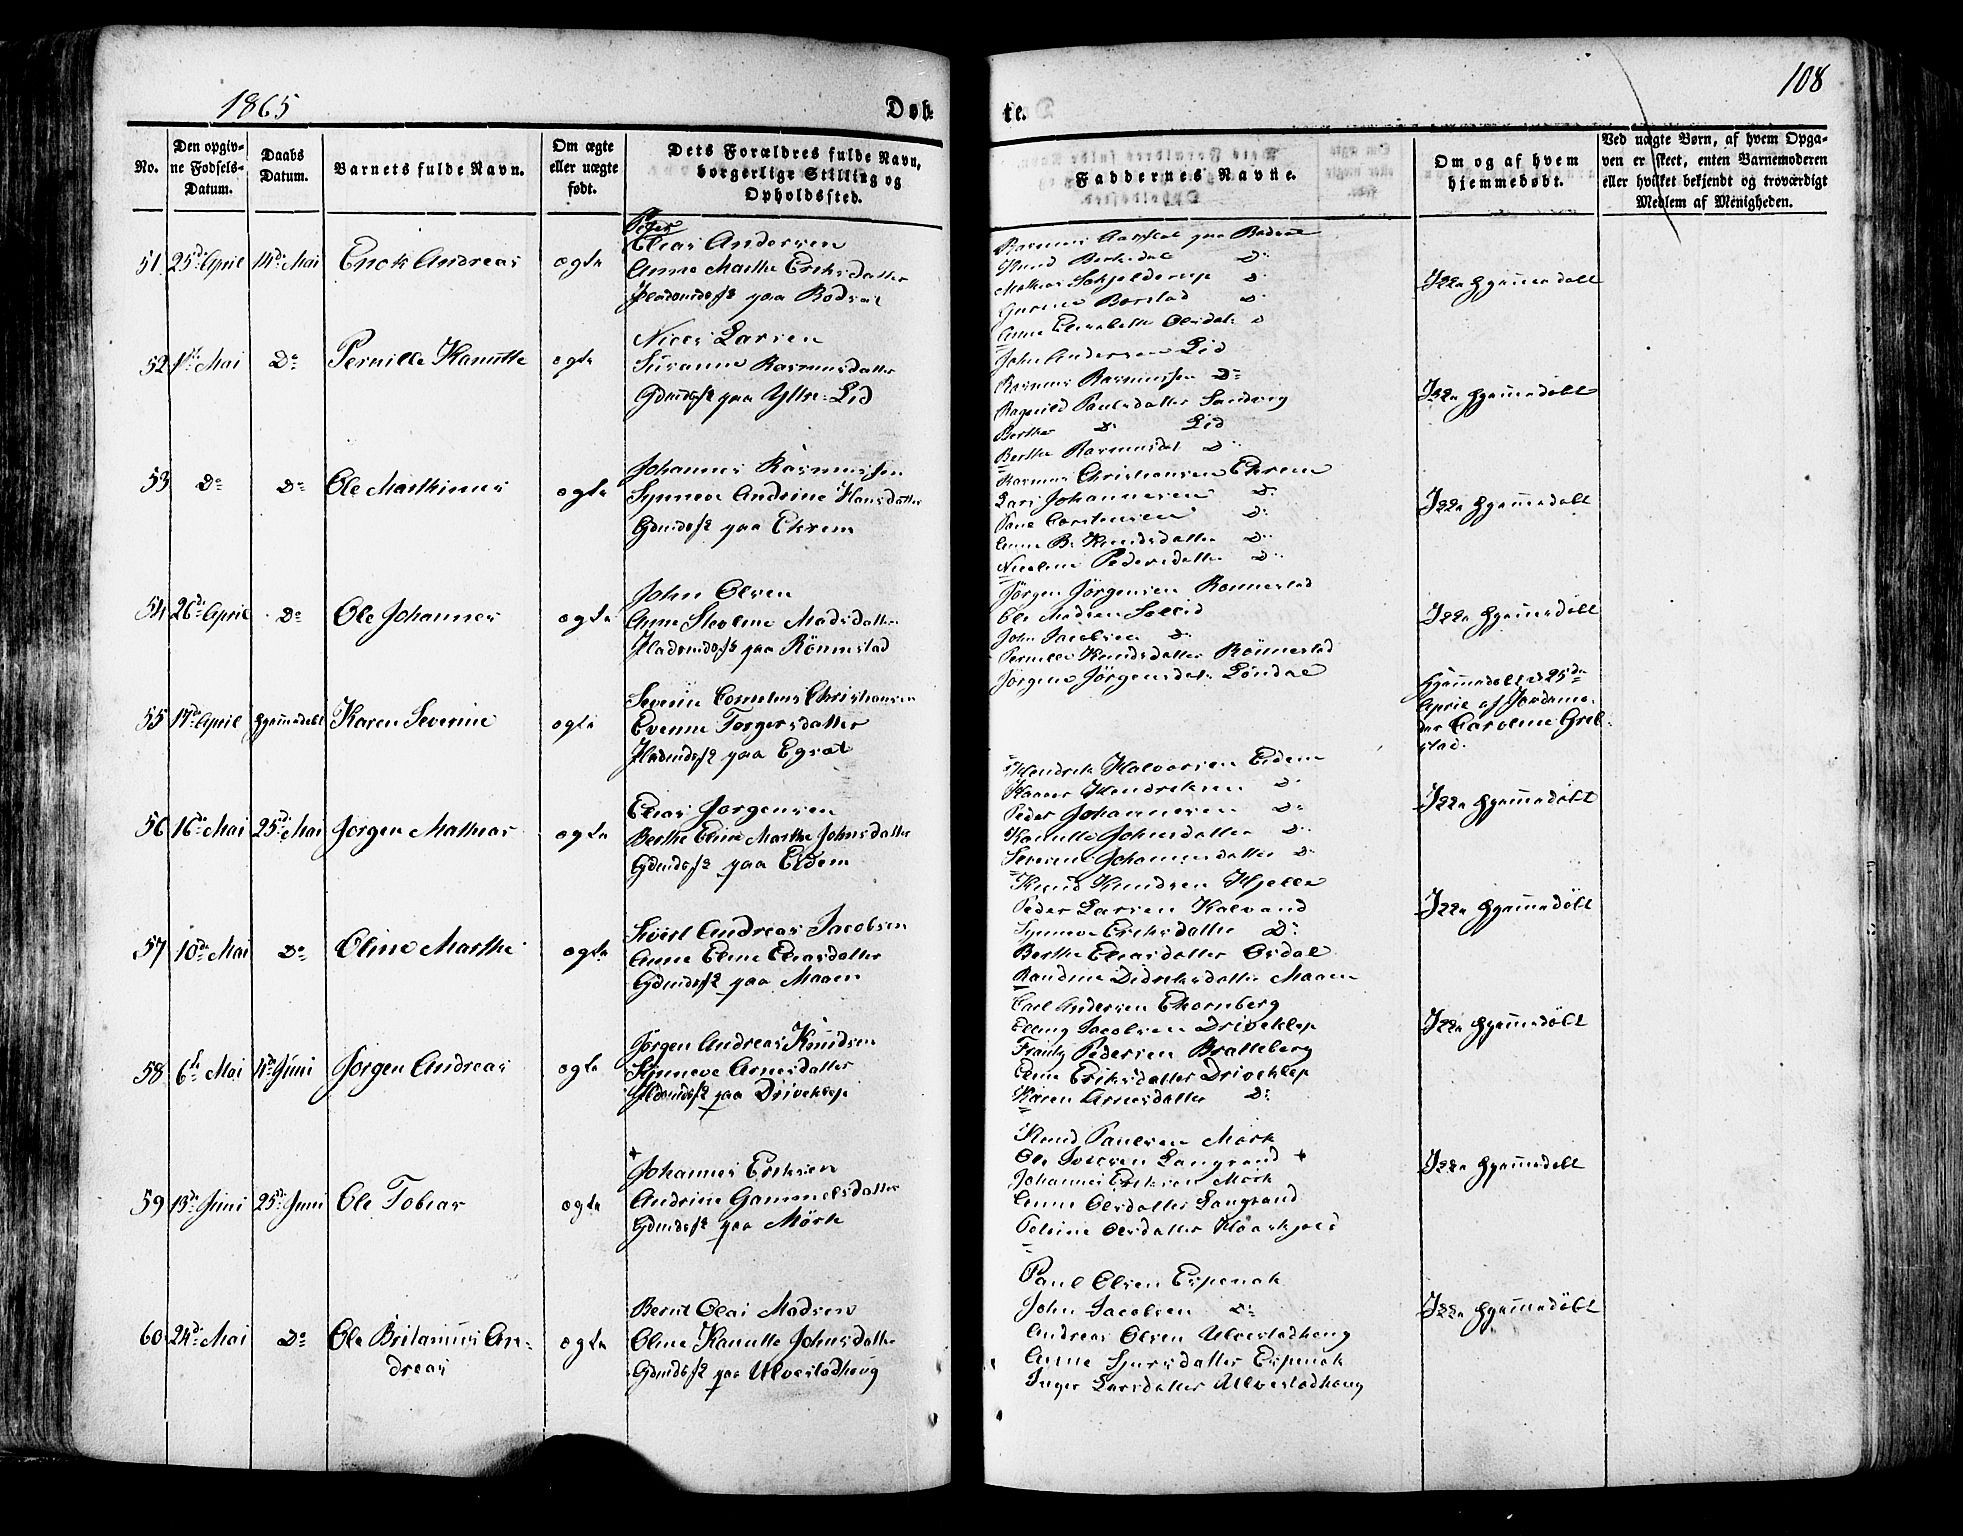 1865
Døb
te.
108
No.
Den opgiv-
ne Fødsels-
Datum.
Daabs
Datum.
Barnets fulde Navn.
Om ægte
eller uægte
født.
Dets Forældres fulde Navn,
borgerlige Stilling og
Opholdssted.
Faddernes Navne.
Om og af hvem
hjemmedøbt.
Ved uægte Børn, af hvem Opga-
ven er skeet, enten Barnemoderen
eller hvilket bekjendt og troværdigt
Medlem af Menigheden.
51 25de April 14de Mai
ægte
Peder
Elias Andersen
Anne Marthe Eriksdatter
paa Rødsæt
Rasmus paa Rødsæt
Knud Do
Mathias Schjelderup Do
Borstad Do
Anne Elisabeth Olsdat. Do
Ikke hjemmedøbt
52 1ste Mai Do Pernille Kanutte ægte
Nils Larsen
Susanne Rasmusdatter
Gdmdsfk paa Yttre-Lid
John Andersen Lid
Rasmus Rasmussen Do
Ragnild Paulsdatter Sandvig
Berthe Do Lid
Berthe Rasmusdat Do
Ikke hjemmedøbt
53 Do Do Ole Mathinus ægte
Johannes Rasmussen
Synneve Andrine Hansdatter
Gdmdsfk paa Ekrem
Rasmus Christiansen Ekrem
Lars Johannesen Do
Carstensen Do
Anne B. Knudsdatter Do
Nicoline Pedersdatter Do
Ikke hjemmedøbt
54 26de April Do Ole Johannes ægte
John Olsen
Anne Madsdatter
paa Rönnestad
Jörgen Jörgensen Rönnestad
Ole Madsen Solliid
John Jacobsen Do
Pernille Knudsdatter Rönnestad
Jörgine Jörgensdat. Löndal
Ikke hjemmedøbt
55 17de April hjemmedøbt Karen Severine ægte
Severin Cornelius Christiansen
Evenne Torgersdatter
paa Egsæt
hjemmedøbt d 25de
April af Jordemo-
der Caroline Greb-
stad.
56 16de Mai 25de Mai Jørgen Mathias ægte
Elias Jørgensen
Berthe Eline Marthe Johnsdatter
Gdmdsfk paa Eidem
Hendrik Halvorsen Eidem
Hendriksen Do
Peder Johannesen Do
Kanutte Johnsdatter Do
Severine Johannesdatter Do
Ikke hjemmedøbt
57 10de Mai Do Oline Marthe ægte
Sivert Andreas Jacobsen
Anne Eline Eliasdatter
Gdmdsfk paa Maaen
Knud Knudsen Hjelle
Peder Larsen Kalvand
Synneve Eriksdatter Do
Berthe Eliasdatter Osdal
Randine Didriksdatter Maaen
Ikke hjemmedøbt
58 6te Mai 4de Juni Jørgen Andreas ægte
Jørgen Andreas Knudsen
Synneve Arnesdatter
paa Driveklep
Carl Andersen Ekornberg
Elling Jacobsen Driveklep
Frantz Pedersen Bratteberg
Eline Eriksdatter Driveklep
Karen Arnesdatter Do
Ikke hjemmedøbt
59 13de Juni 25de Juni Ole Tobias ægte
Johannes Eriksen
Andrine Gammelsdatter
Gdmdsfk paa Mörk
Knud Paulsen Mörk
Ole Langvand
Johannes Eriksen Mörk
Anne Olsdatter Langvand
Petrine Olsdatter
Ikke hjemmedøbt
60 24de Mai Do Ole Britanius An-
dreas
ægte
Bernt Olai Madsen
Oline Kanutte Johnsdatter
Gdmdsfk paa Ulvestadhoug
Paul Olsen Espenak
John Jacobsen Do
Andreas Olsen Ulvestadhoug
Anne Sjursdatter Espenak
Inger Larsdatter Ulvestadhoug
Ikke hjemmedøbt